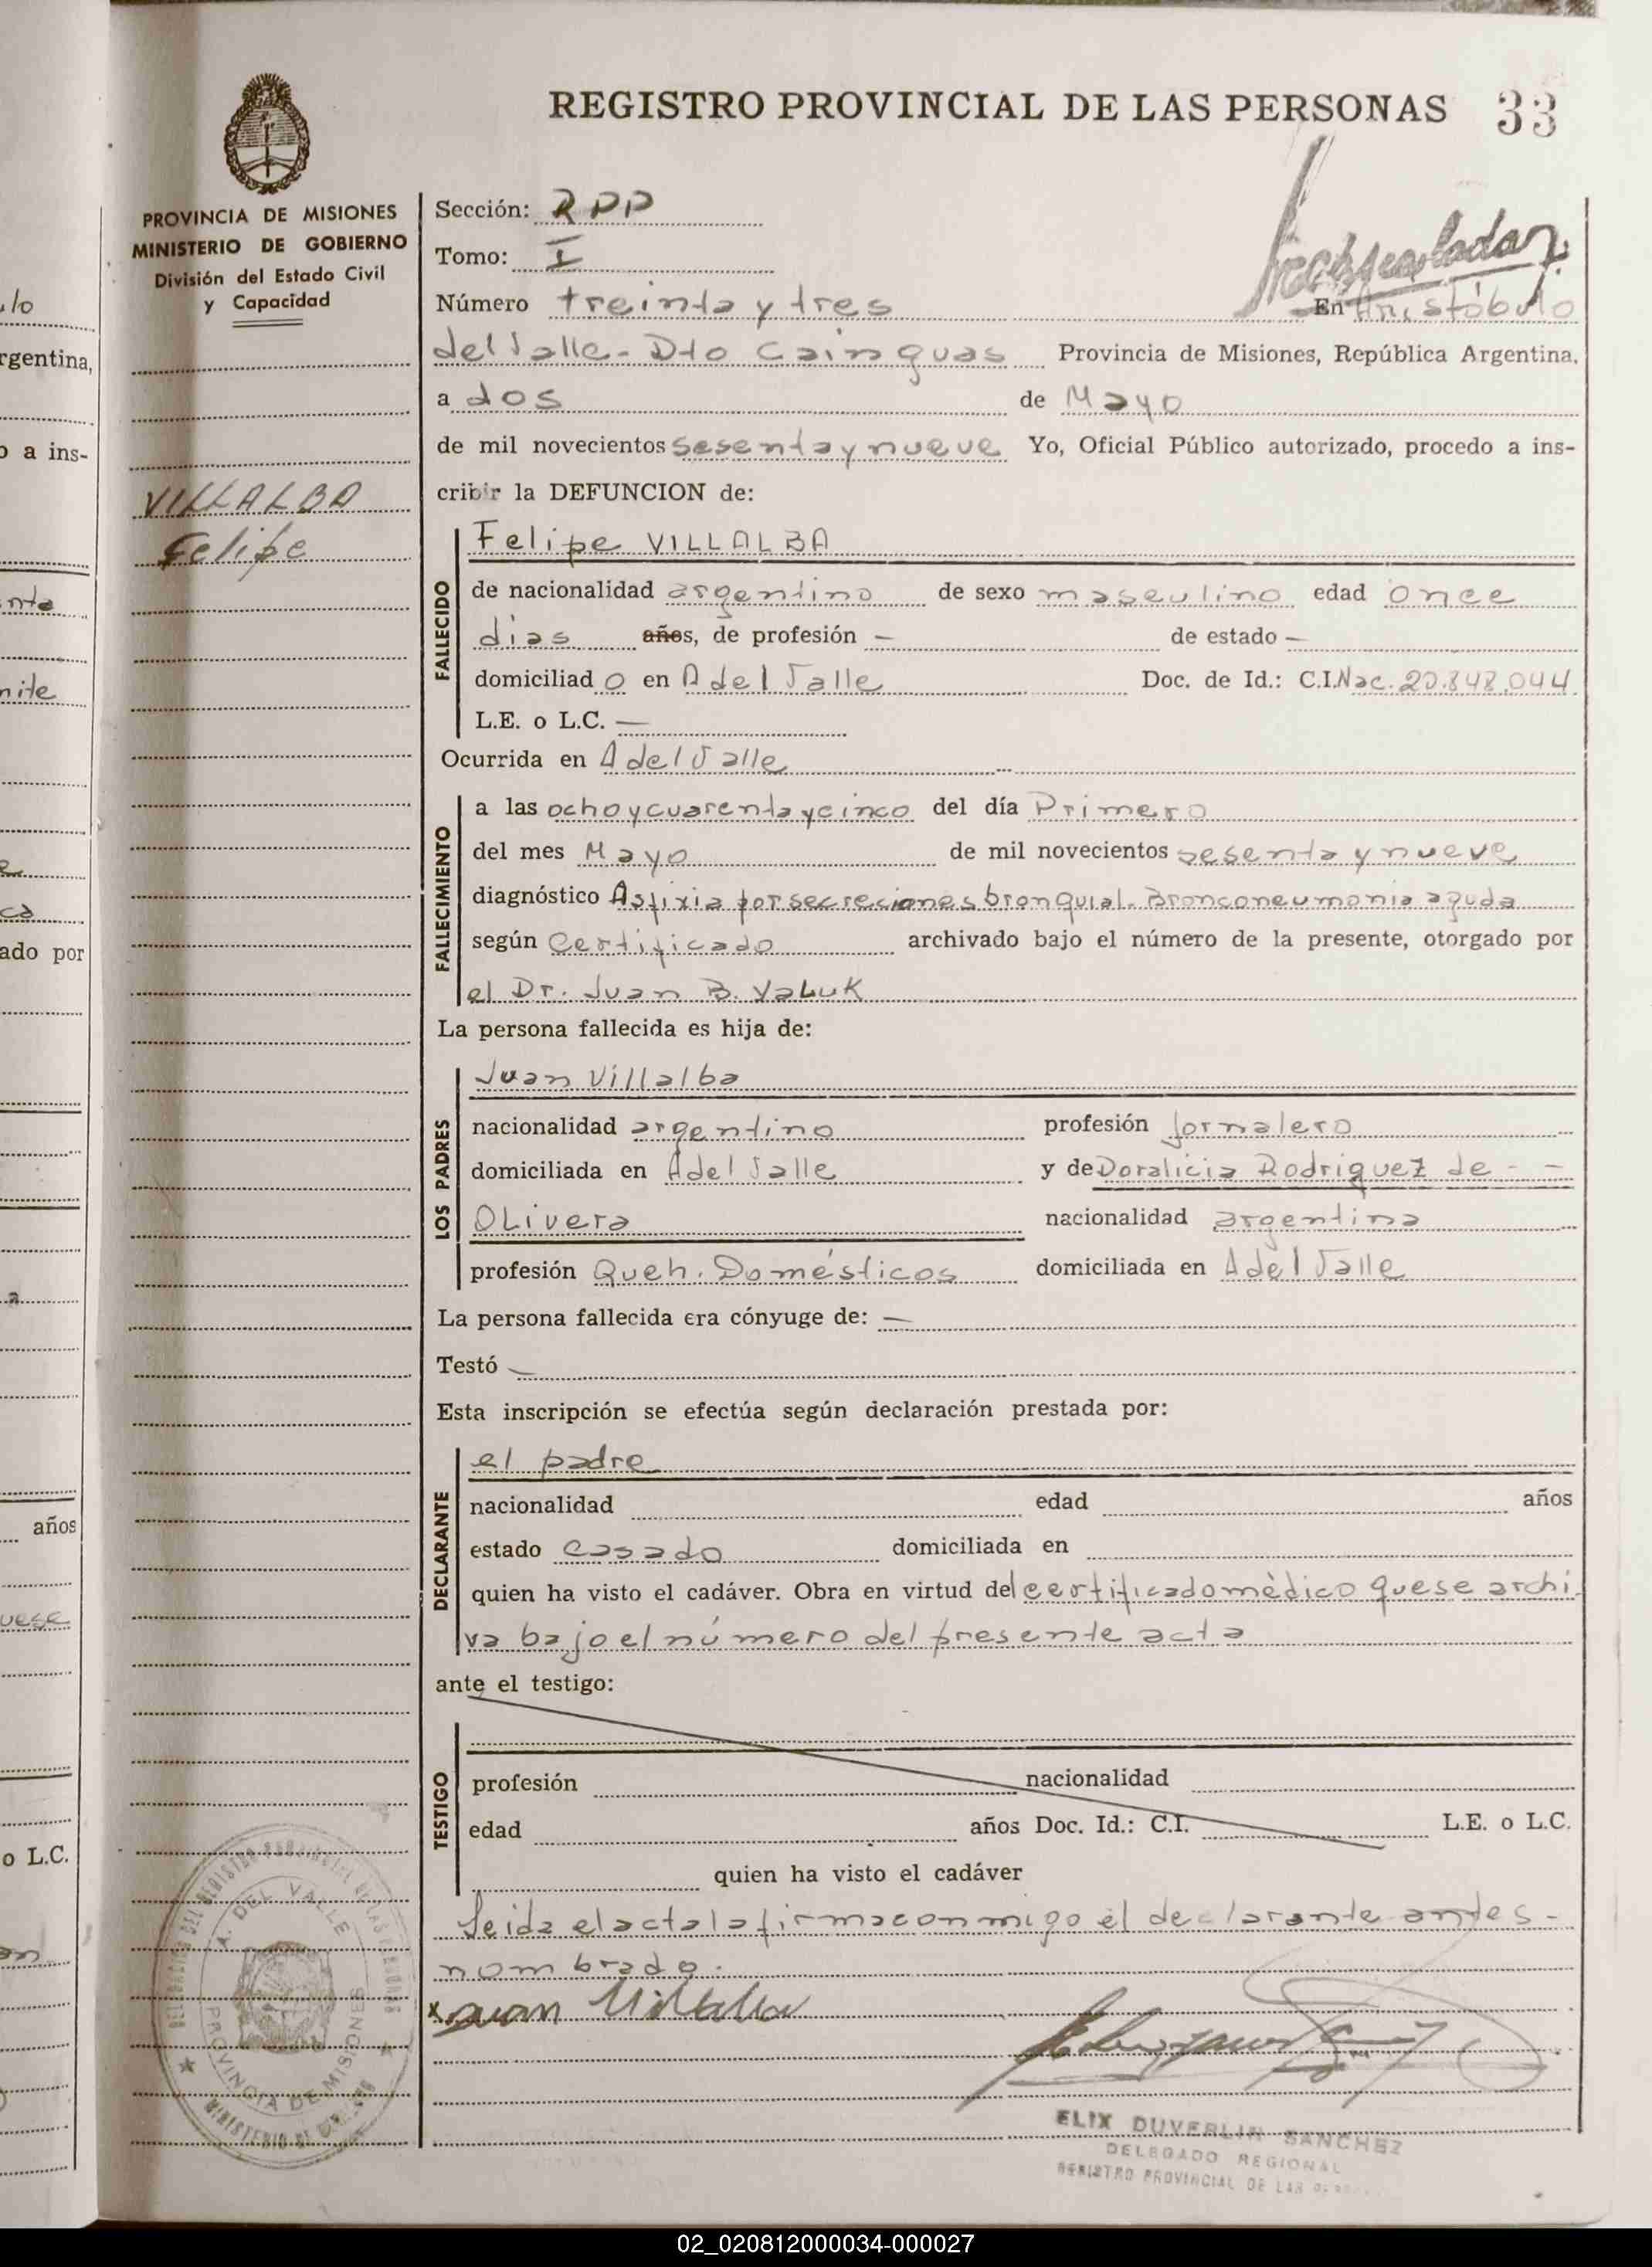 REGISTRO PROVINCIAL DE LAS PERSONAS 33
PROVINCIA DE MISIONES
MINISTERIO DE GOBIERNO
División del Estado Civil
y Capacidad
VILLALBA
Felipe
Sección: RPP
Tomo: I
Número treinta y tres En Aristóbulo
del Valle - Dto Cainguas Provincia de Misiones, República Argentina,
a dos de Mayo
de mil novecientos sesenta y nueve Yo, Oficial Público autorizado, procedo a ins-
cribir la DEFUNCION de:
FALLECIDO
Felipe VILLALBA
de nacionalidad argentino de sexo masculino edad once
dias años, de profesión — de estado —
domiciliad o en A del Valle Doc. de Id.: C.I. Nac. 20.848.044
L.E. o L.C. —
Ocurrida en A del Valle
FALLECIMIENTO
a las ocho y cuarenta y cinco del día Primero
del mes Mayo de mil novecientos sesenta y nueve
diagnóstico Asfixia por secreciones bronquial. Bronconeumonia aguda
según Certificado archivado bajo el número de la presente, otorgado por
el Dr. Juan B. Yaluk
La persona fallecida es hija de:
LOS PADRES
Juan Villalba
nacionalidad argentino profesión Jornalero
domiciliada en A del Valle y de Doralicia Rodriguez de - -
Olivera nacionalidad argentina
profesión Queh. Domésticos domiciliada en A del Valle
La persona fallecida era cónyuge de: —
Testó —
Esta inscripción se efectúa según declaración prestada por:
DECLARANTE
el padre
nacionalidad edad años
estado casado domiciliada en
quien ha visto el cadáver. Obra en virtud del certificado médico que se archi
va bajo el número del presente acta
ante el testigo:
TESTIGO
profesión nacionalidad
edad años Doc. Id.: C.I. L.E. o L.C.
quien ha visto el cadáver
Leida el acta la firma conmigo el declarante antes -
nombrado.
x Juan Villalba
A. DEL VALLE
PROVINCIA DE MISIONES
ELIX DUVERLIR SANCHEZ
DELEGADO REGIONAL
REGISTRO PROVINCIAL DE LAS
rgentina,
o a ins-
ado por
años
o L.C.
02_020812000034-000027